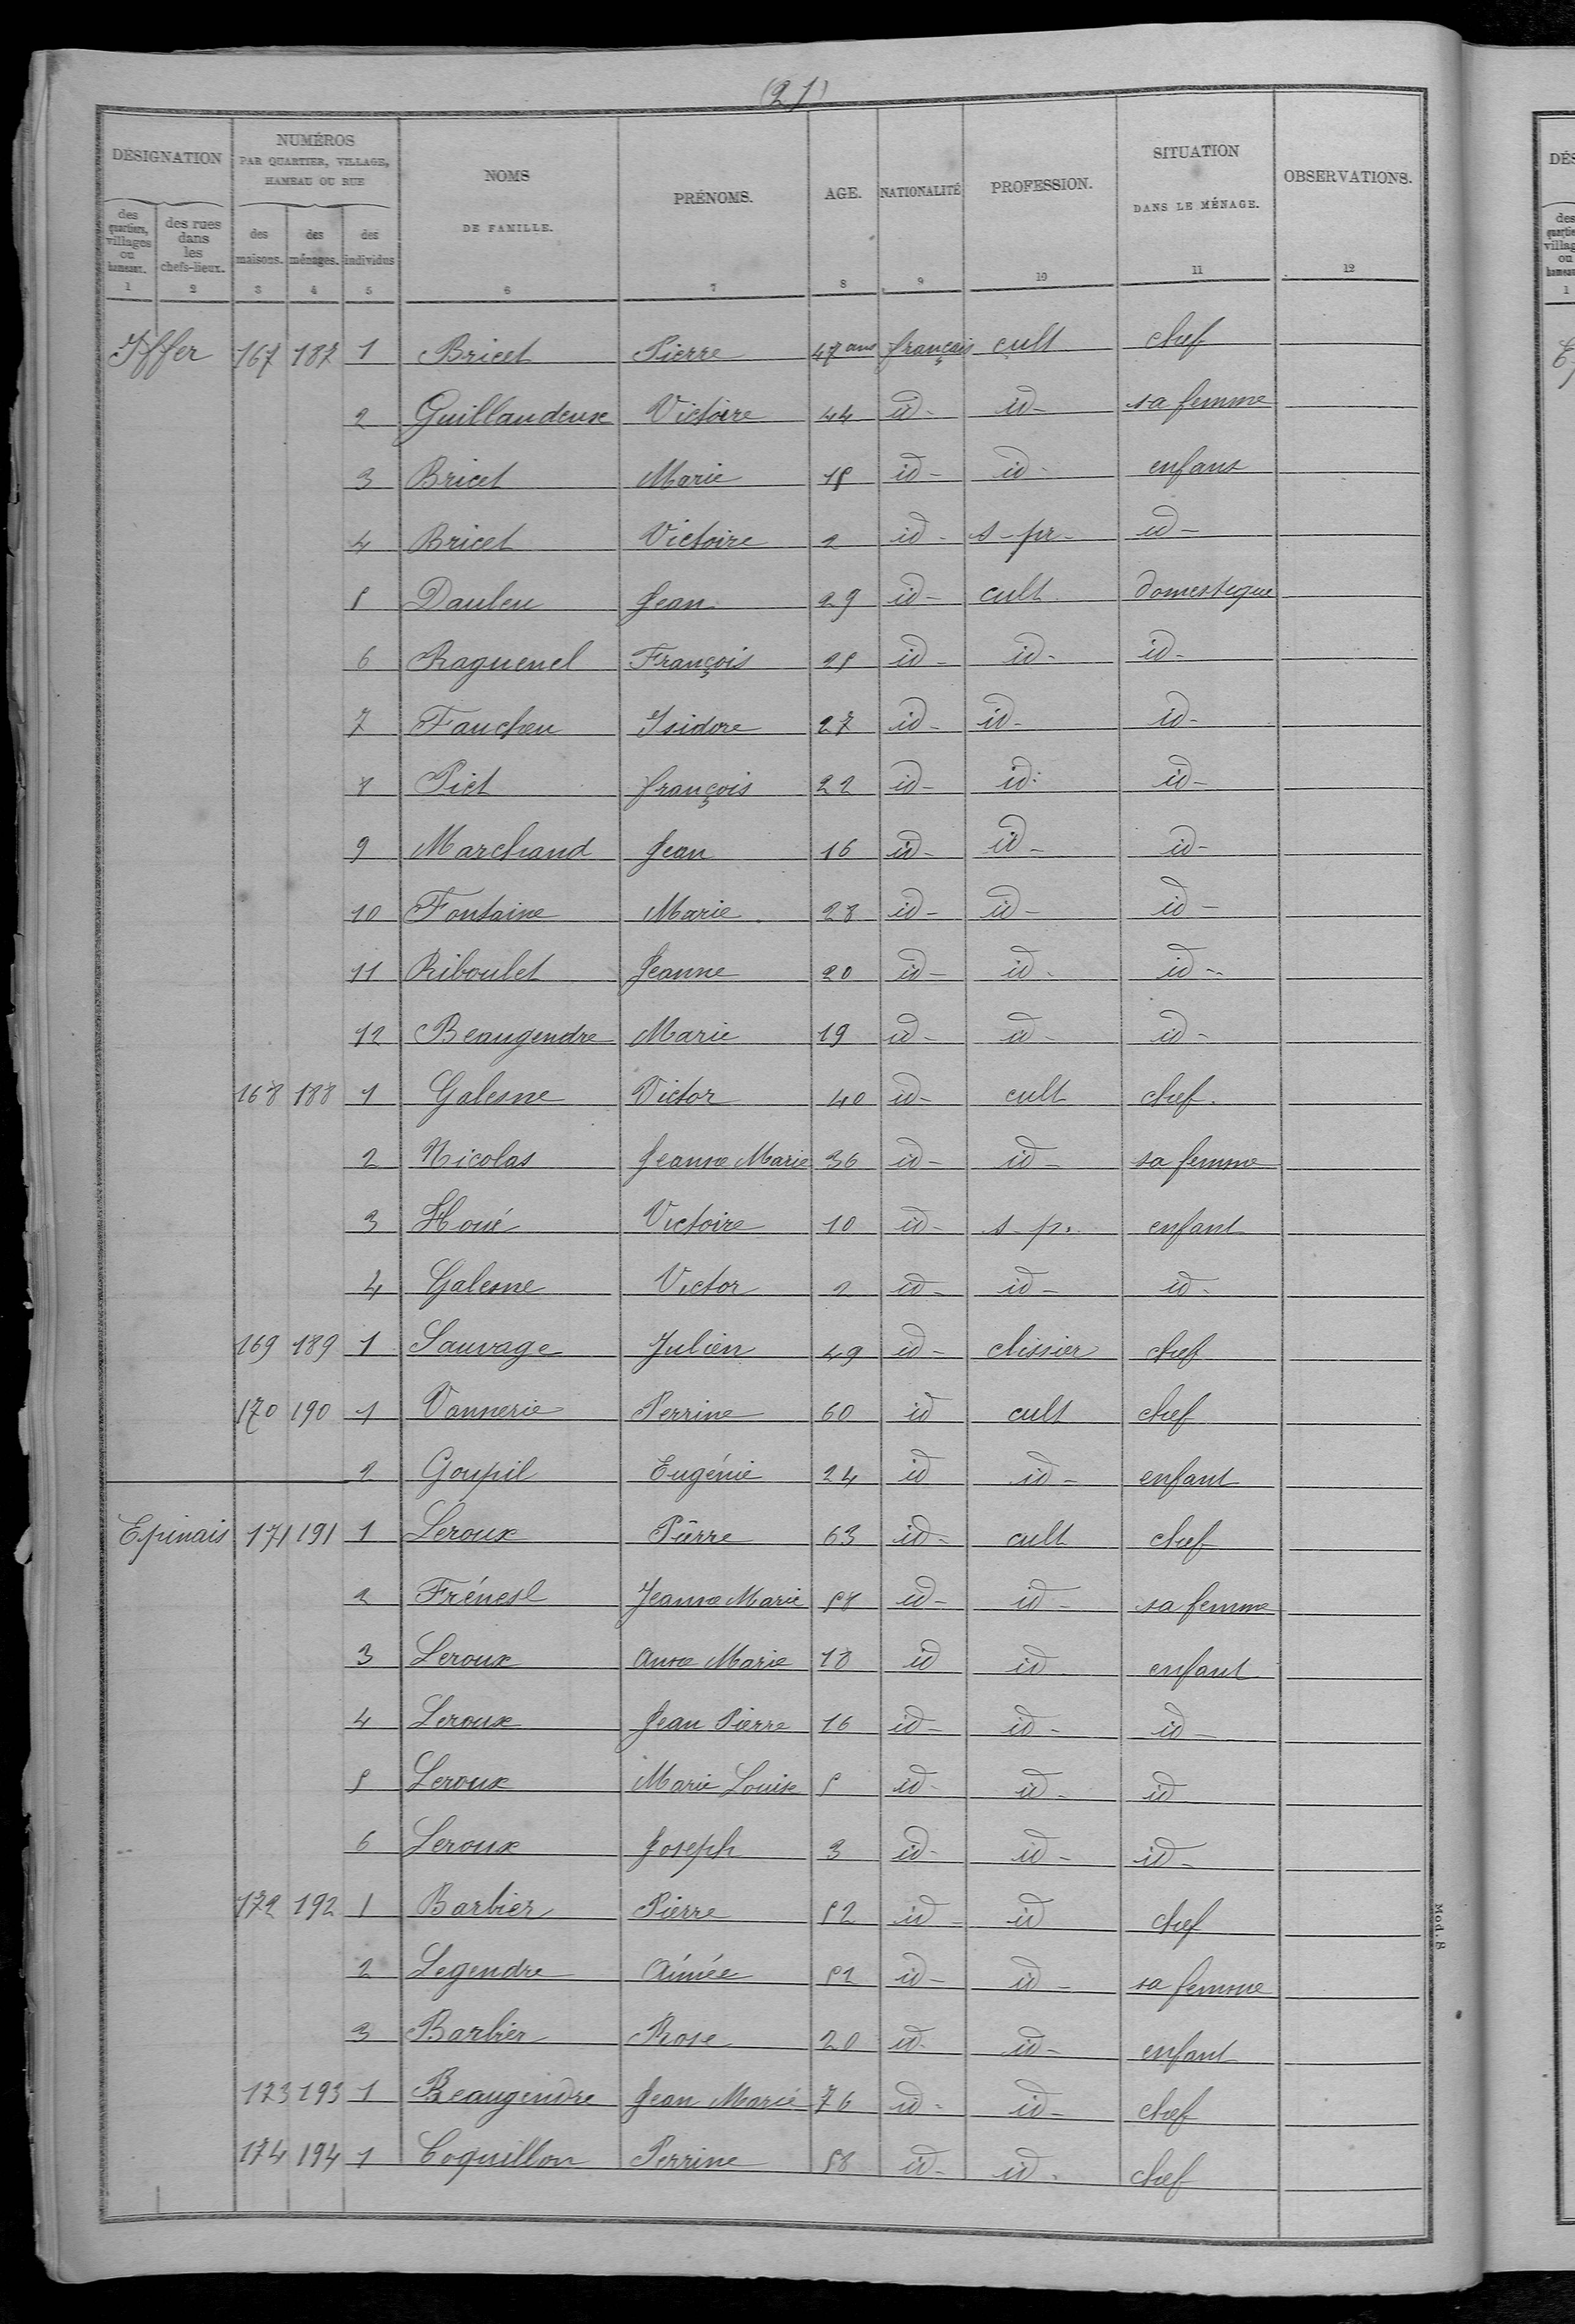 (21)
DÉSIGNATION
NUMÉROS PAR QUARTIER, VILLAGE, HAMEAU OU RUE
NOMS DE FAMILLE.
PRÉNOMS.
AGE.
NATIONALITÉ
PROFESSION.
SITUATION DANS LE MÉNAGE.
OBSERVATIONS.
des quartiers, villages ou hameaux.
des rues dans les chefs-lieux.
des maisons.
des ménages.
des individus
1 2 3 4 5 6 7 8 9 10 11 12
Iffer 167 187 1 Bricet Pierre 47 ans français cult chef
2 Guillaudeux Victoire 44 id- id- sa femme
3 Bricet Marie 15 id- id- enfant
4 Bricet Victoire 2 id- s-pr- id-
5 Dauleu Jean 29 id- cult domestique
6 Raguenel François 25 id- id- id-
7 Faucheu Isidore 27 id- id- id-
8 Piet François 22 id- id- id-
9 Marchand Jean 16 id- id- id-
10 Fontaine Marie 28 id- id- id-
11 Riboulet Jeanne 20 id- id- id-
12 Beaugendre Marie 19 id- id- id-
168 188 1 Galesne Victor 40 id- cult chef.
2 Nicolas Jeanne Marie 36 id- id- sa femme
3 Houé Victoire 10 id- s-p. enfant
4 Galesne Victor 2 id- id- id-
169 189 1 Sauvage Julien 49 id- clissier chef
170 190 1 Vannerie Perrine 60 id cult chef
2 Goupil Eugénie 24 id id- enfant
Epinais 171 191 1 Leroux Pierre 63 id- cult chef
2 Frénesl Jeanne Marie 58 id- id- sa femme
3 Leroux Anne Marie 18 id id enfant
4 Leroux Jean Pierre 16 id- id- id-
5 Leroux Marie Louise 5 id- id- id
6 Leroux Joseph 3 id- id- id-
172 192 1 Barbier Pierre 52 id- id chef
2 Legendre Aimée 52 id- id- sa femme
3 Barbier Rose 20 id- id- enfant
173 193 1 Beaugendre Jean Marie 76 id- id- chef
174 194 1 Coquillon Perrine 58 id- id- chef
Mod. 8